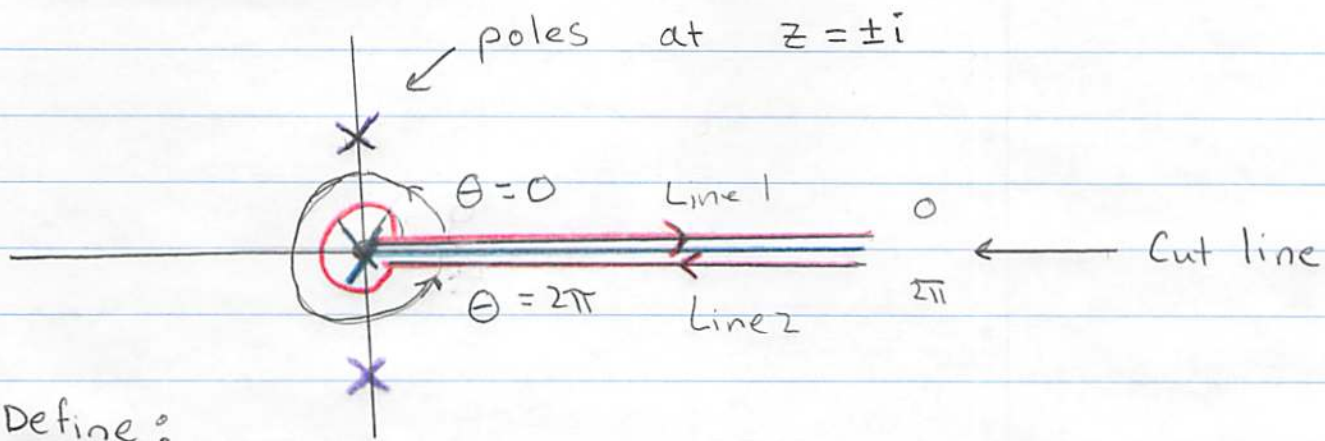 poles at z = ±i
θ = 0 Line 1 0
Cut line
θ = 2π Line 2 2π
Define: